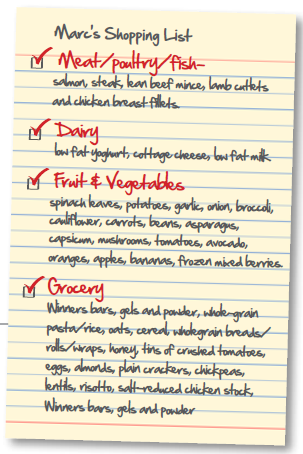 Marc's Shopping List
Meat/poultry/fish-
salmon, steak, lean beef mince, lamb cutlets
and chicken breast fillets.
Dairy
low fat yoghurt, cottage cheese, low fat milk
Fruit & Vegetables
spinach leaves, potatoes, garlic, onion, broccoli,
cauliflower, carrots, beans, asparagus,
capsicum, mushrooms, tomatoes, avocado,
oranges, apples, bananas, frozen mixed berries.
Grocery
Winners bars, gels and powder, whole-grain
pasta/rice, oats, cereal, wholegrain breads/
rolls/wraps, honey, tins of crushed tomatoes,
eggs, almonds, plain crackers, chickpeas,
lentils, risotto, salt-reduced chicken stock,
Winners bars, gels and powder